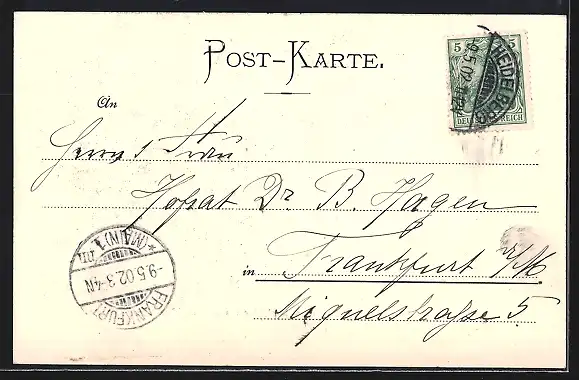 POST-KARTE.
5 5
DEUTSCHES REICH
HEIDELBERG
-9.5.02.
An
Herrn & Frau
Hofrat Dr. B. Hagen
in Frankfurt a/M
Miquelstraße 5
* (MAIN) 1
-9.5.02.3-4N
FRANKFURT